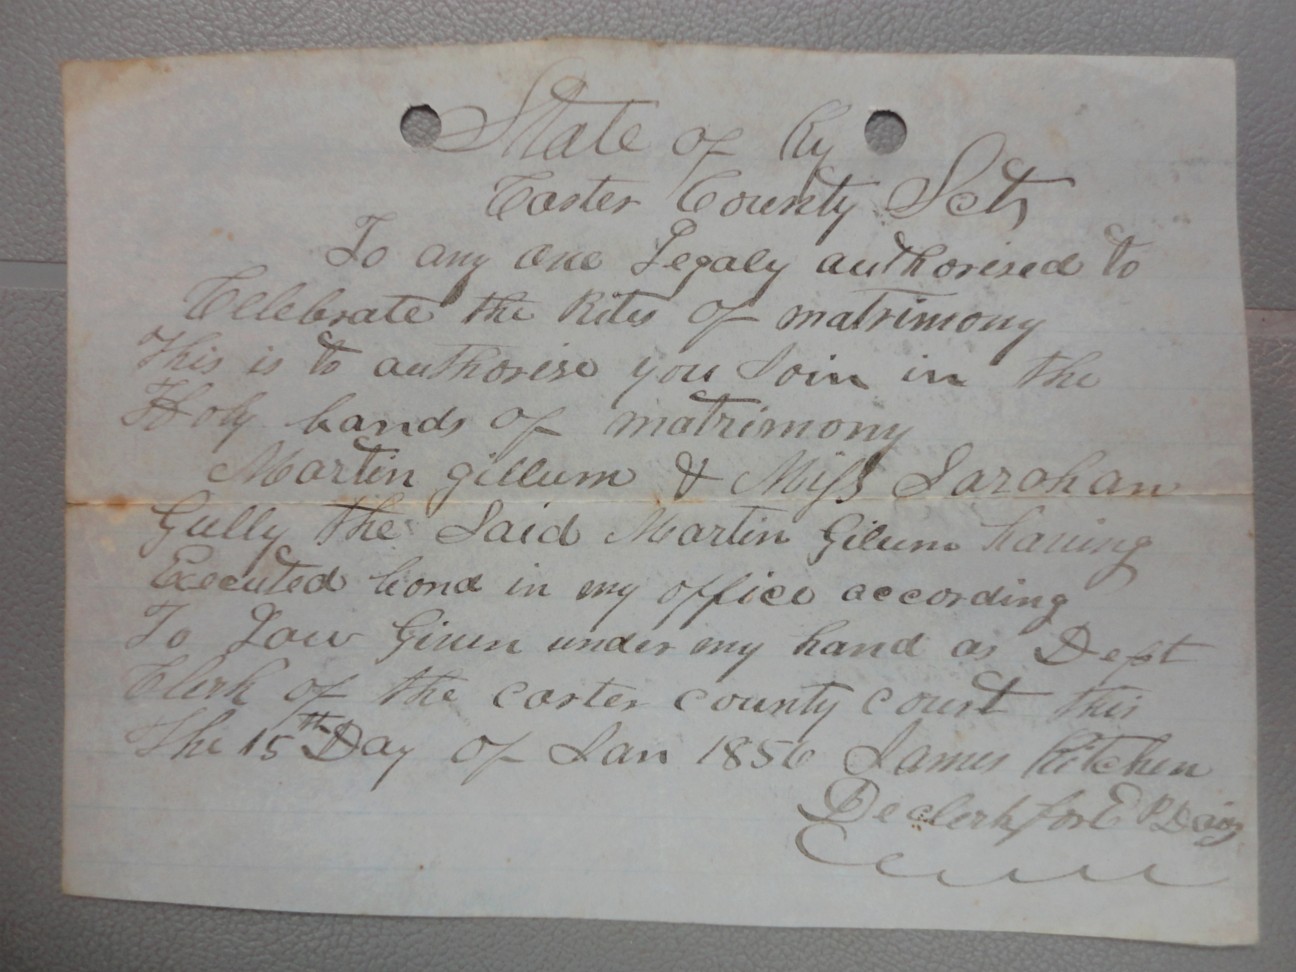 State of Ky
Carter County Sct,
To any one Legaly authorised to
Celebrate the Rites of matrimony
This is to authorise you Join in the
Holy bands of matrimony
Martin gillum & Miss Sarahan
Gully the Said Martin Gilum having
Executed bond in my office according
To Law Given under my hand as Dept
Clerk of the carter county court this
The 15th Day of Jan 1856 James Kitchen
De clerk for E P Davis